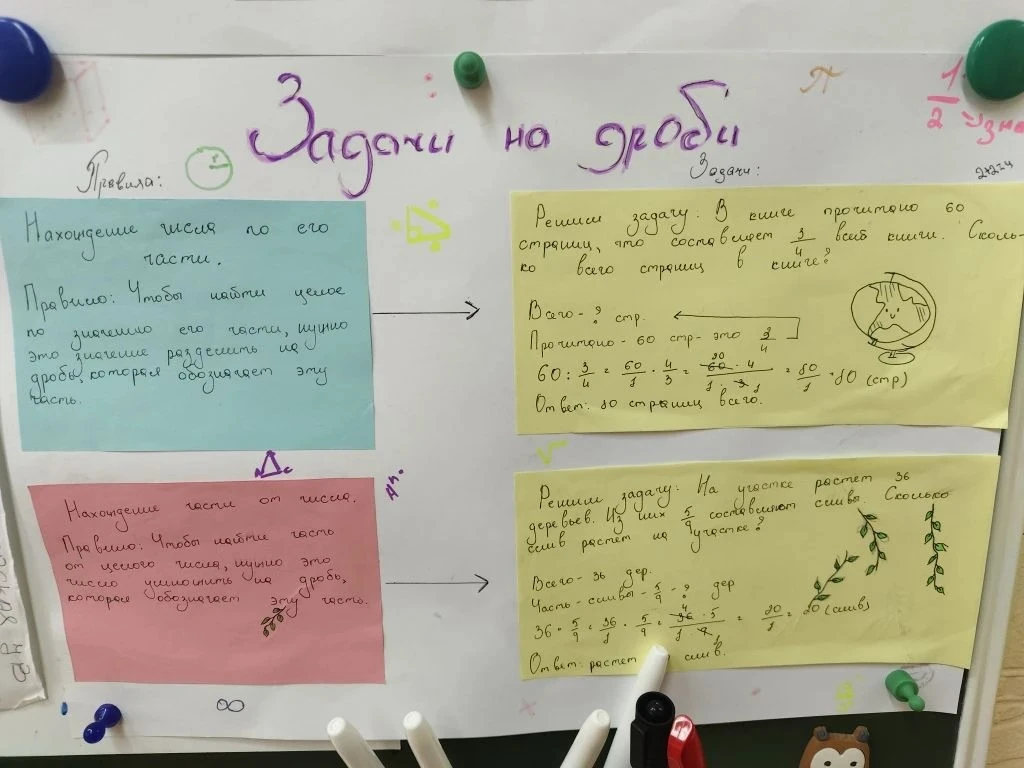 Задачи на дроби
π
1/2 => зна
2+2=4
Правила:
Задачи:
Нахождение числа по его
части.
Правило: Чтобы найти целое
по значению его части, нужно
это значение разделить на
дробь, которая обозначает эту
часть.
Решим задачу: В книге прочитано 60
страниц, что составляет 3/4 всей книги. Сколь-
ко всего страниц в книге?
Всего - ? стр.
Прочитано - 60 стр - это 3/4
60 : 3/4 = 60/1 · 4/3 = 60 · 4/1 · 3 = 80/1 = 80 (стр)
Ответ: 80 страниц всего.
Нахождение части от числа.
Правило: Чтобы найти часть
от целого числа, нужно это
число умножить на дробь,
которая обозначает эту часть.
Решим задачу: На участке растет 36
деревьев. Из них 5/9 составляют сливы. Сколько
слив растет на участке?
Всего - 36 дер.
Часть - сливы - 5/9 - ? дер
36 · 5/9 = 36/1 · 5/9 = 36 · 5/1 · 9 = 20/1 = 20 (слив)
Ответ: растет слив.
∞